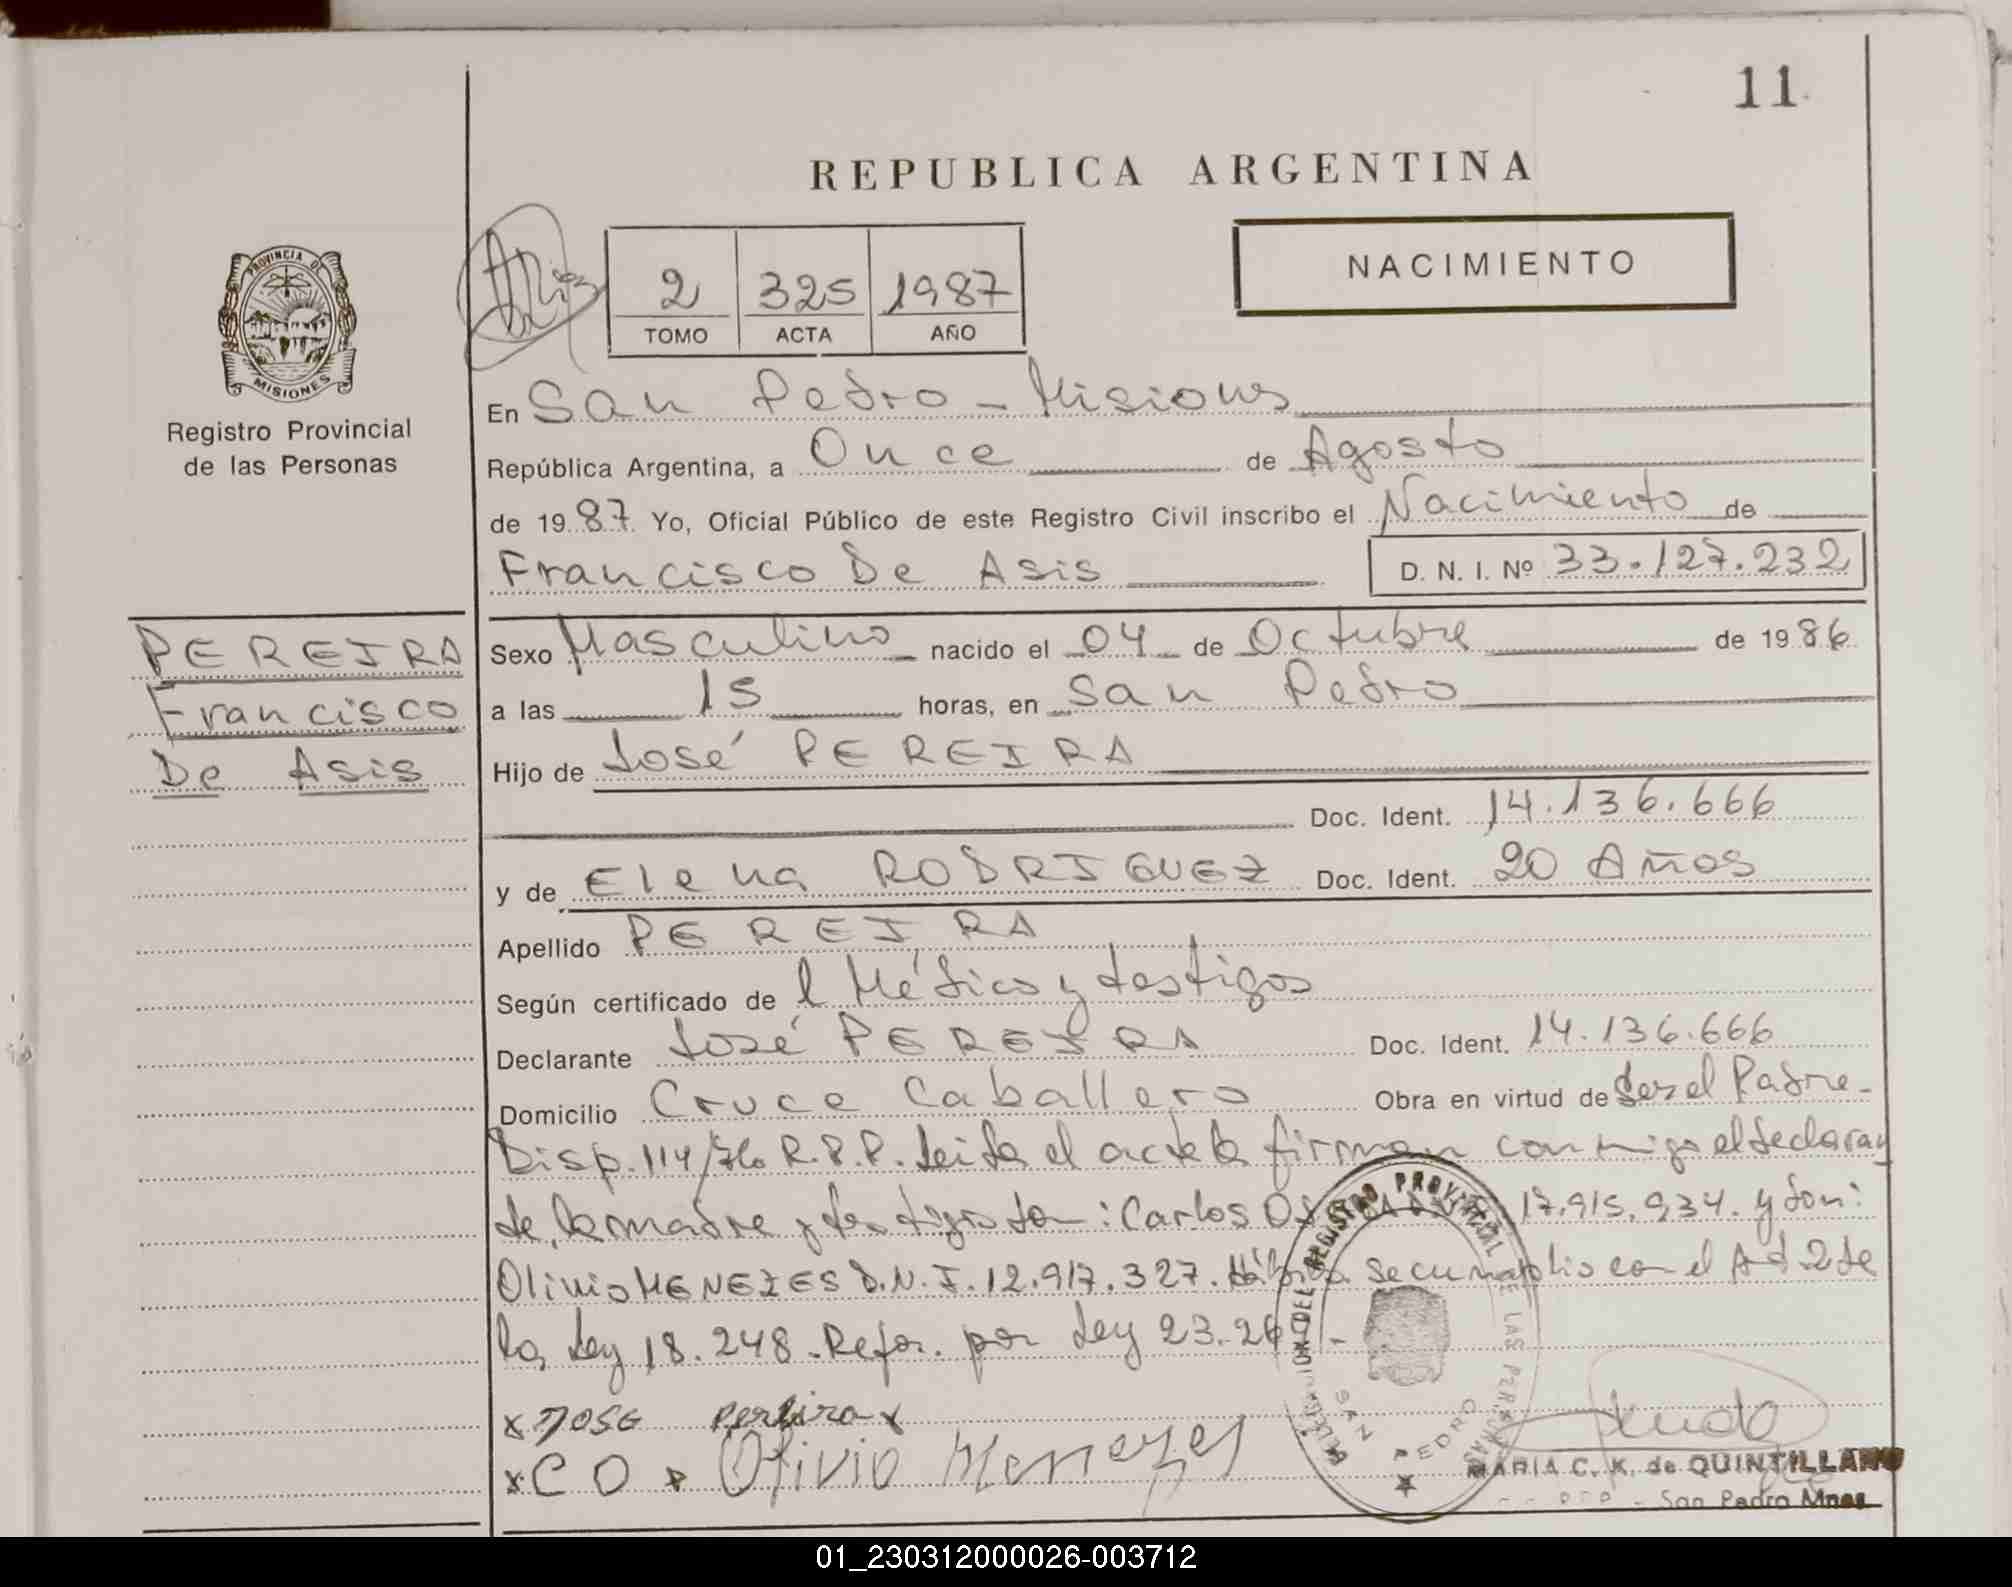 11
REPUBLICA ARGENTINA
NACIMIENTO
2 325 1987
TOMO ACTA AÑO
PROVINCIA DE
MISIONES
Registro Provincial
de las Personas
PEREIRA
Francisco
De Asis
En San Pedro - Misiones
República Argentina, a Once de Agosto
de 1987 Yo, Oficial Público de este Registro Civil inscribo el Nacimiento de
Francisco De Asis D. N. I. Nº 33.127.232
Sexo Masculino nacido el 04 de Octubre de 1986
a las 15 horas, en San Pedro
Hijo de José PEREIRA
Doc. Ident. 14.136.666
y de Elena RODRIGUEZ Doc. Ident. 20 Años
Apellido PEREIRA
Según certificado de l Médico y testigos
Declarante José PEREIRA Doc. Ident. 14.136.666
Domicilio Cruce Caballero Obra en virtud de Ser el Padre-
Disp. 114/76 R.P.P. Leida el acta la firman conmigo el declaran
te, la madre y testigos Carlos 17.915.934. y Don:
Olivio MENEZES D.N.I. 12.917.327. Se cumplio con el Art. 2 de
la Ley 18.248. Refor. por Ley 23.26
x JOSE Pereira x
x C O x Olivio Menezes
DELEGACION DEL REGISTRO PROVINCIAL DE LAS PERSONAS
SAN PEDRO
MARIA C. K. de QUINTILLANO
San Pedro Mnes.
01_230312000026-003712